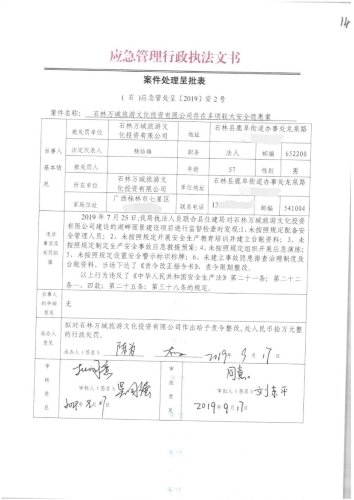 14
应急管理行政执法文书
案件处理呈批表
(石)应急管处呈〔2019〕安2号
案件名称: 石林万城旅游文化投资有限公司存在多项较大安全隐患案
当事人基本情况
被处罚单位 石林万城旅游文化投资有限公司 地址 石林县鹿阜街道办事处龙泉路
法定代表人 职务 法人 邮编 652200
被处罚人 年龄 57 性别 男
所在单位 石林万城旅游文化投资有限公司 单位地址 石林县鹿阜街道办事处龙泉路
家庭住址 广西桂林市七星区 联系电话 邮编 541004
违法事实及处罚依据
2019年7月25日,我局执法人员联合县住建局对石林万城旅游文化投资有限公司建设的湖畔圆景建设项目进行监督检查时发现:1、未按照规定配备安全管理人员;2、未按照规定开展安全生产教育培训并建立台账资料;3、未按照规定制定生产安全事故应急救援预案;4、未按照规定组织开展应急演练;5、未按照规定设置安全警示标识标牌;6、未建立事故隐患排查治理制度及台账资料。当场下达了《责令改正指令书》,责令限期整改。
以上行为违反了《中华人民共和国安全生产法》第二十一条;第二十二条一、四款;第二十五条;第三十八条之规定。
当事人的申辩意见
无
承办人意见
拟对石林万城旅游文化投资有限公司作出给予责令整改,处人民币拾万元整的行政处罚。
承办人(签名): 2019年9月17日
审核意见
审核人(签名):
审批意见
同意。
审批人(签名): 刘东平
2019年9月17日